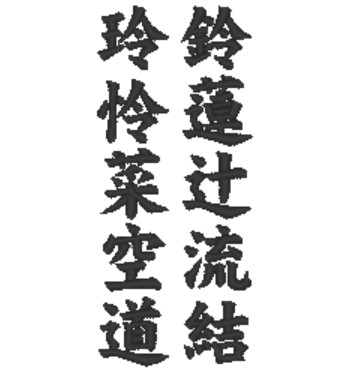 鈴蓮辻流結
玲怜菜空道